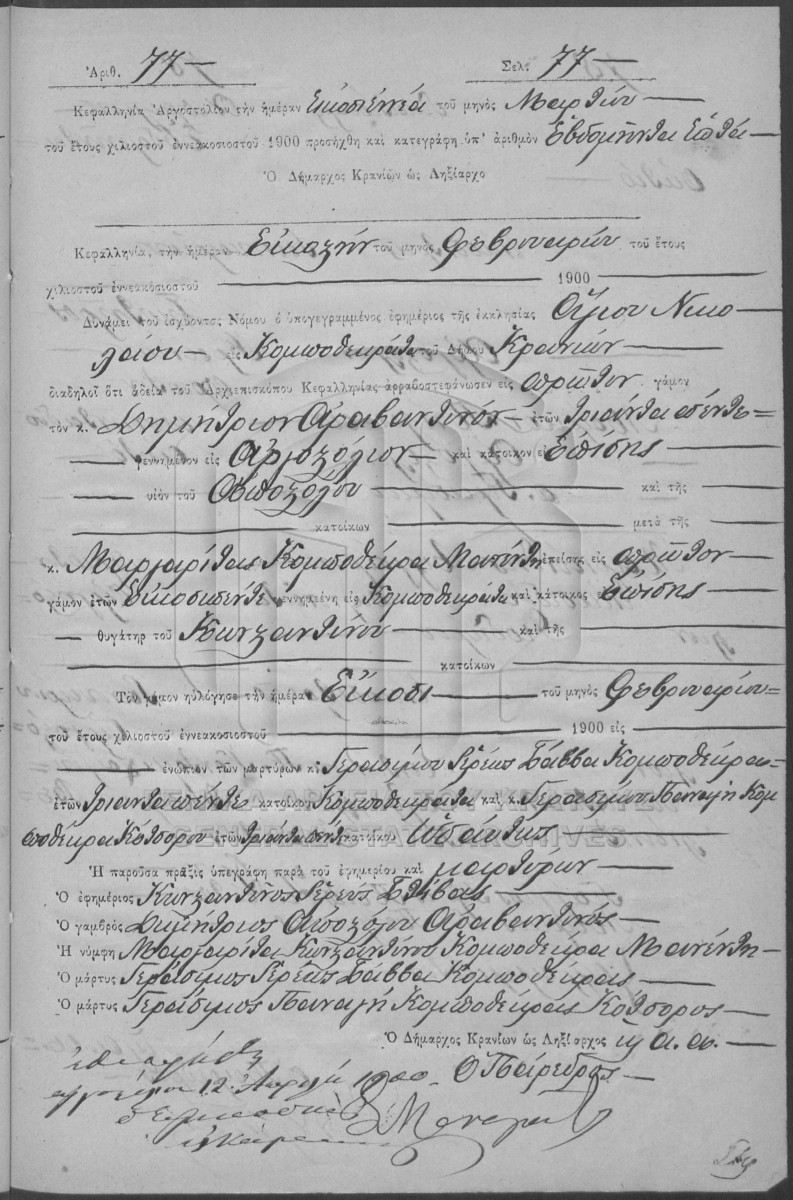 Ἀριθ. 77 — Σελ: 77 —
Κεφαλληνία Ἀργοστόλιον τὴν ἡμέραν Εἰκοσιεννέα τοῦ μηνὸς Μαρτίου —
τοῦ ἔτους χιλιοστοῦ ἐννεακοσιοστοῦ 1900 προσήχθη καὶ κατεγράφη ὑπ' ἀριθμὸν Ἑβδομῆντα Ἑπτά —
Ὁ Δήμαρχος Κρανίων ὡς Ληξίαρχο
Κεφαλληνία, τὴν ἡμέραν Εἰκοστὴν τοῦ μηνὸς Φεβρουαρίου τοῦ ἔτους
χιλιοστοῦ ἐννεακοσιοστοῦ — 1900 —
Δυνάμει τοῦ ἰσχύοντος Νόμου ὁ ὑπογεγραμμένος ἐφημέριος τῆς ἐκκλησίας Ἁγίου Νικο
λάου — εἰς Κομποθεκράτα τοῦ Δήμου Κρανίων —
διαδηλοῖ ὅτι ἀδείᾳ τοῦ Ἀρχιεπισκόπου Κεφαλληνίας ἀρραβοστεφάνωσεν εἰς πρῶτον γάμον
τὸν κ. Δημήτριον Ἀραβαντινόν — ἐτῶν τριάντα πέντε =
— γεννημένον εἰς Ἀργοστόλιον — καὶ κάτοικον εἰ Ἐπίσης —
— υἱὸν τοῦ Ἀποστόλου — καὶ τῆς —
— κατοίκων — μετὰ τῆς —
κ. Μαργαρίτας Κομποθέκρα Μανέντη ἐπίσης εἰς πρῶτον —
γάμον ἐτῶν Εἰκοσιπέντε γεννημένη εἰς Κομποθεκράτα καὶ κάτοικος ε Ἐπίσης —
— θυγάτηρ τοῦ Κωνσταντίνου — καὶ τῆς —
— κατοίκων —
Τὸν γάμον ηὐλόγησε τὴν ἡμέραν Εἴκοσι — τοῦ μηνὸς Φεβρουαρίου =
τοῦ ἔτους χιλιοστοῦ ἐννεακοσιοστοῦ — 1900 εἰς —
— ἐνώπιον τῶν μαρτύρων κ. Γερασίμου Ἱερέως Σάββα Κομποθέκρα —
ἐτῶν Τριανταπέντε κατοίκου Κομποθεκράτα καὶ κ. Γερασίμου Παναγῆ Κομ
ποθέκρα Κότσορου ἐτῶν Τριάντα πέντε κατοίκου Ὡσάντως —
Ἡ παροῦσα πρᾶξις ὑπεγράφη παρὰ τοῦ ἐφημερίου καὶ μαρτύρων —
Ὁ ἐφημέριος Κωνσταντῖνος Ἱερεὺς —
Ὁ γαμβρὸς Δημήτριος Ἀποστόλου Ἀραβαντινός —
Ἡ νύμφη Μαργαρίτα Κωνσταντίνου Κομποθέκρα Μανέντη —
Ὁ μάρτυς Γεράσιμος Ἱερέως Σάββα Κομποθέκρας —
Ὁ μάρτυς Γεράσιμος Παναγῆ Κομποθέκρας Κότσορος —
Ὁ Δήμαρχος Κρανίων ὡς Ληξίαρχος κ. α. α. —
Ἐθεωρήθη
12 Ἀπριλίου 1900 Ὁ Πάρεδρος —